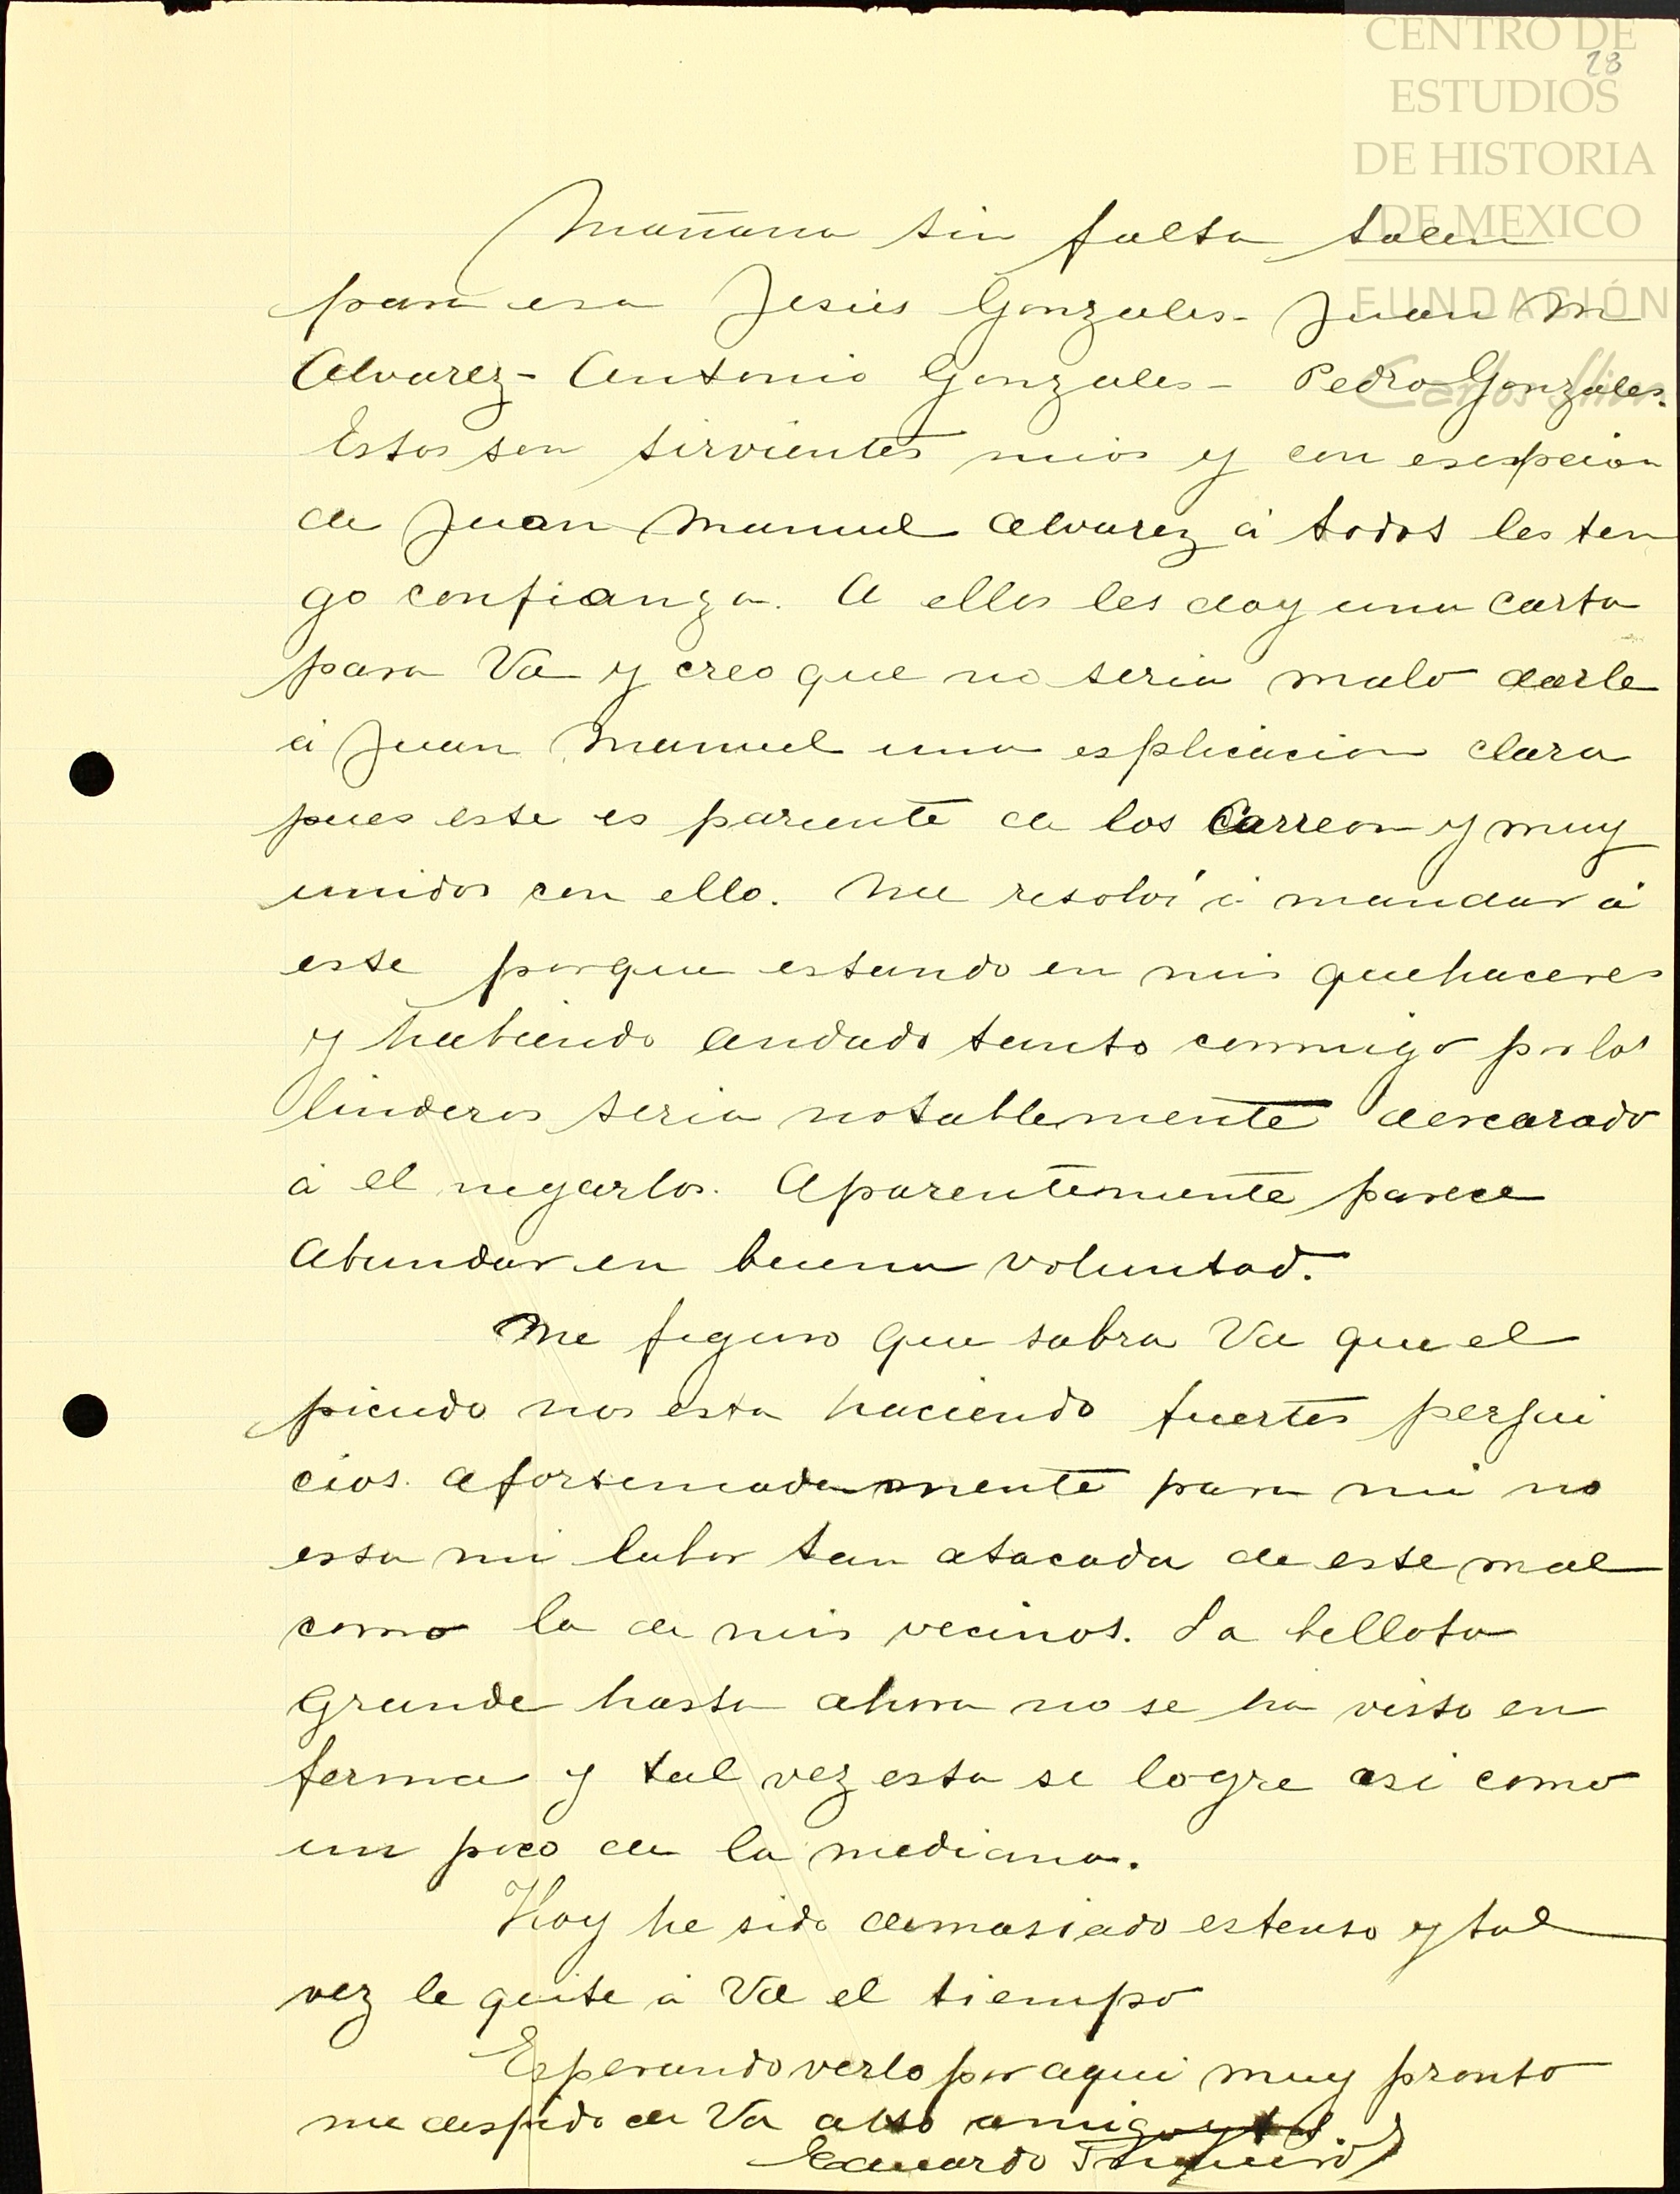 CENTRO DE
28
ESTUDIOS
DE HISTORIA
DE MEXICO
FUNDACIÓN
Carlos Slim
Mañana sin falta salen
para esa Jesús Gonzales- Juan M
Alvarez- Antonio Gonzales- Pedro Gonzales.
Estos son sirvientes mios y con esepcion
de Juan Manuel Alvarez á todos les ten
go confianza. A ellos les doy una carta
para Vd y creo que no seria malo darle
á Juan Manuel una esplicacion clara
pues este es pariente de los Carreon y muy
unidos con ello. Me resolví á mandar á
este porque estando en mis quehaceres
y habiendo andado tanto conmigo por los
linderos seria notablemente descarado
á el negarlos. Aparentemente parece
abundar en buena voluntad.
Me figuro que sabra Vd que el
picudo nos esta haciendo fuertes perjui
cios. Afortunadamente para mi no
esta mi labor tan atacada de este mal
como la de mis vecinos. La bellota
grande hasta ahora no se ha visto en
ferma y tal vez esta se logre asi como
un poco de la mediana.
Hoy he sido demasiado estenso y tal
vez le quite á Vd el tiempo
Esperando verlo por aqui muy pronto
me despido de Vd atto amigo y
Eduardo